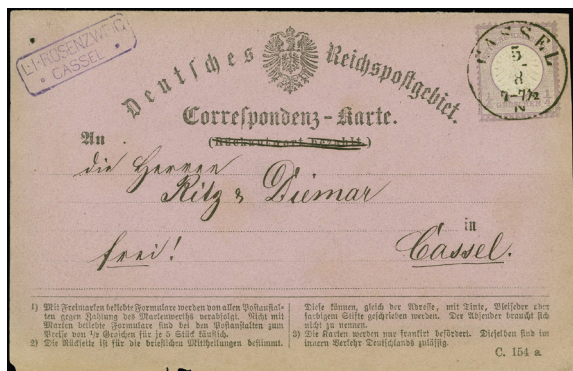 L.I. ROSENZWEIG
* CASSEL *
Deutsches Reichspostgebiet.
CASSEL
5
8
7-7½
N
Correspondenz-Karte.
(Rückantwort bezahlt.)
An
die Herren
Ritz & Diemar
in
frei!
Cassel.
1) Mit Freimarken beklebte Formulare werden von allen Postanstal-
ten gegen Zahlung des Markenwerths verabfolgt. Nicht mit
Marken beklebte Formulare sind bei den Postanstalten zum
Preise von ½ Groschen für je 5 Stück käuflich.
2) Die Rückseite ist für die brieflichen Mittheilungen bestimmt.
Diese können, gleich der Adresse, mit Tinte, Bleifeder oder
farbigem Stifte geschrieben werden. Der Absender braucht sich
nicht zu nennen.
3) Die Karten werden nur frankirt befördert. Dieselben sind im
innern Verkehr Deutschlands zulässig.
C. 154 a.